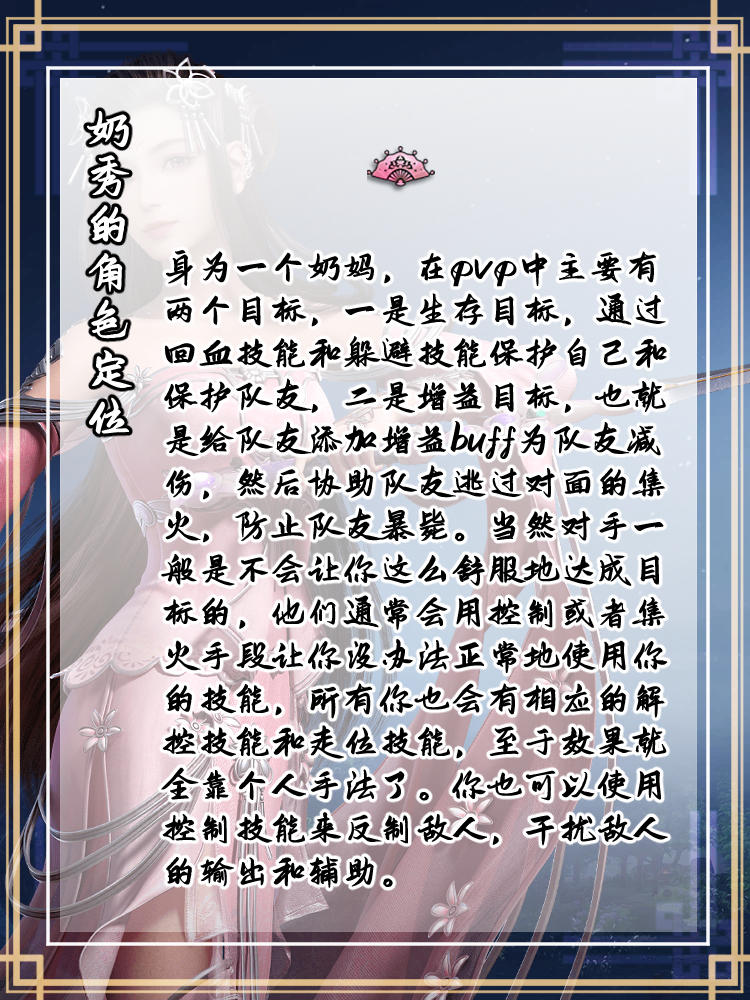 奶秀的角色定位
身为一个奶妈，在pvp中主要有
两个目标，一是生存目标，通过
回血技能和躲避技能保护自己和
保护队友，二是增益目标，也就
是给队友添加增益buff为队友减
伤，然后协助队友逃过对面的集
火，防止队友暴毙。当然对手一
般是不会让你这么舒服地达成目
标的，他们通常会用控制或者集
火手段让你没办法正常地使用你
的技能，所有你也会有相应的解
控技能和走位技能，至于效果就
全靠个人手法了。你也可以使用
控制技能来反制敌人，干扰敌人
的输出和辅助。